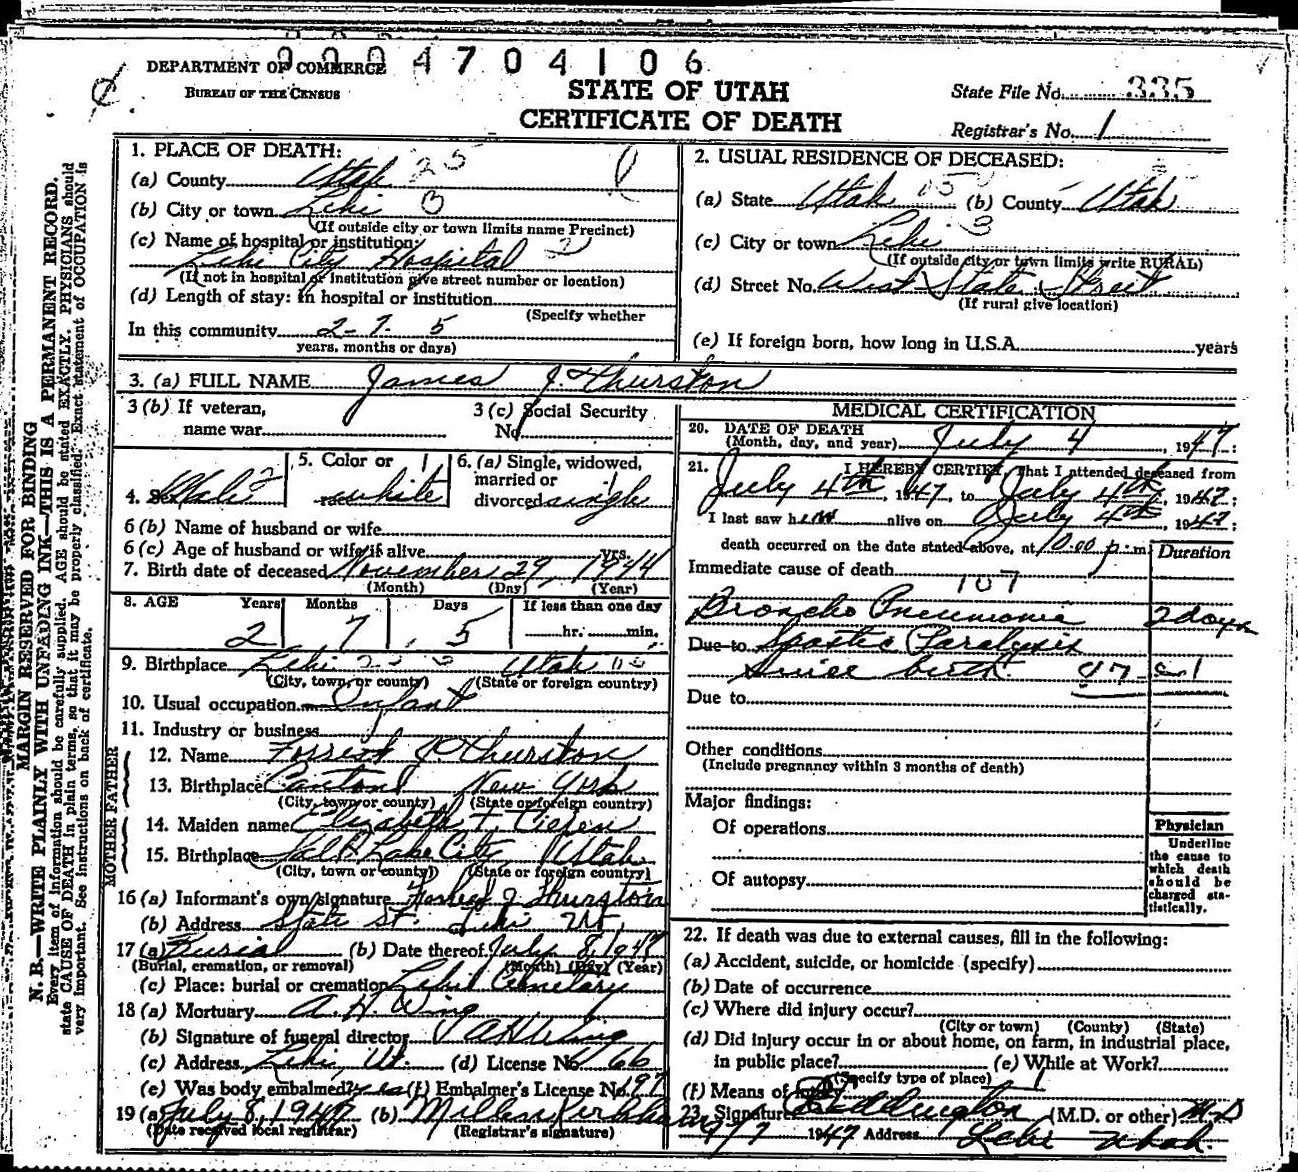 0004704106
DEPARTMENT OF COMMERCE
BUREAU OF THE CENSUS
STATE OF UTAH
CERTIFICATE OF DEATH
State File No. 335
Registrar's No. 1
MARGIN RESERVED FOR BINDING
N. B.—WRITE PLAINLY WITH UNFADING INK—THIS IS A PERMANENT RECORD.
Every item of information should be carefully supplied. AGE should be stated EXACTLY. PHYSICIANS should
state CAUSE OF DEATH in plain terms, so that it may be properly classified. Exact statement of OCCUPATION is
very important. See instructions on back of certificate.
1. PLACE OF DEATH:
(a) County Utah 25
(b) City or town Lehi 3
(If outside city or town limits name Precinct)
(c) Name of hospital or institution:
Lehi City Hospital
(If not in hospital or institution give street number or location)
(d) Length of stay: In hospital or institution
(Specify whether
In this community 2-7-5
years, months or days)
2. USUAL RESIDENCE OF DECEASED:
(a) State Utah (b) County Utah
(c) City or town Lehi 3
(If outside city or town limits write RURAL)
(d) Street No. West State Street
(If rural give location)
(e) If foreign born, how long in U.S.A. years
3. (a) FULL NAME James J. Thurston
3 (b) If veteran,
name war
3 (c) Social Security
No.
4. Sex Male 2
5. Color or
race white
6. (a) Single, widowed,
married or
divorced single
6 (b) Name of husband or wife
6 (c) Age of husband or wife if alive yrs.
7. Birth date of deceased November 29, 1944
(Month) (Day) (Year)
8. AGE Years Months Days If less than one day
2 7 5 hr. min.
9. Birthplace Lehi Utah
(City, town or county) (State or foreign country)
10. Usual occupation Infant
11. Industry or business
FATHER
12. Name Forrest J. Thurston
13. Birthplace Canton New York
(City, town or county) (State or foreign country)
MOTHER
14. Maiden name Elizabeth T.
15. Birthplace Salt Lake City, Utah
(City, town or county) (State or foreign country)
16 (a) Informant's own signature J Thurston
(b) Address State St. Lehi Ut.
17 (a) Burial (b) Date thereof July 8, 1947
(Burial, cremation, or removal) (Month) (Day) (Year)
(c) Place: burial or cremation Lehi Cemetary
18 (a) Mortuary A. H. Wing
(b) Signature of funeral director A H Wing
(c) Address Lehi, Ut. (d) License No. 66
(e) Was body embalmed? yes (f) Embalmer's License No. 197
19 (a) July 8, 1947 (b)
(Date received local registrar) (Registrar's signature)
MEDICAL CERTIFICATION
20. DATE OF DEATH
(Month, day, and year) July 4, 1947;
21. I HEREBY CERTIFY, That I attended deceased from
July 4th, 1947, to July 4th, 1947;
I last saw him alive on July 4th, 1947;
death occurred on the date stated above, at 10:00 p.m.
Duration
Immediate cause of death
107
Broncho Pneumonia 2 days
Due to Spastic Paralysis
Since birth.
Due to
Other conditions
(Include pregnancy within 3 months of death)
Major findings:
Of operations
Of autopsy
Physician
Underline
the cause to
which death
should be
charged sta-
tistically.
22. If death was due to external causes, fill in the following:
(a) Accident, suicide, or homicide (specify)
(b) Date of occurrence
(c) Where did injury occur?
(City or town) (County) (State)
(d) Did injury occur in or about home, on farm, in industrial place,
in public place? (e) While at Work?
(Specify type of place)
(f) Means of injury
23. Signature Eddington (M.D. or other) M.D
1947 Address Lehi Utah.